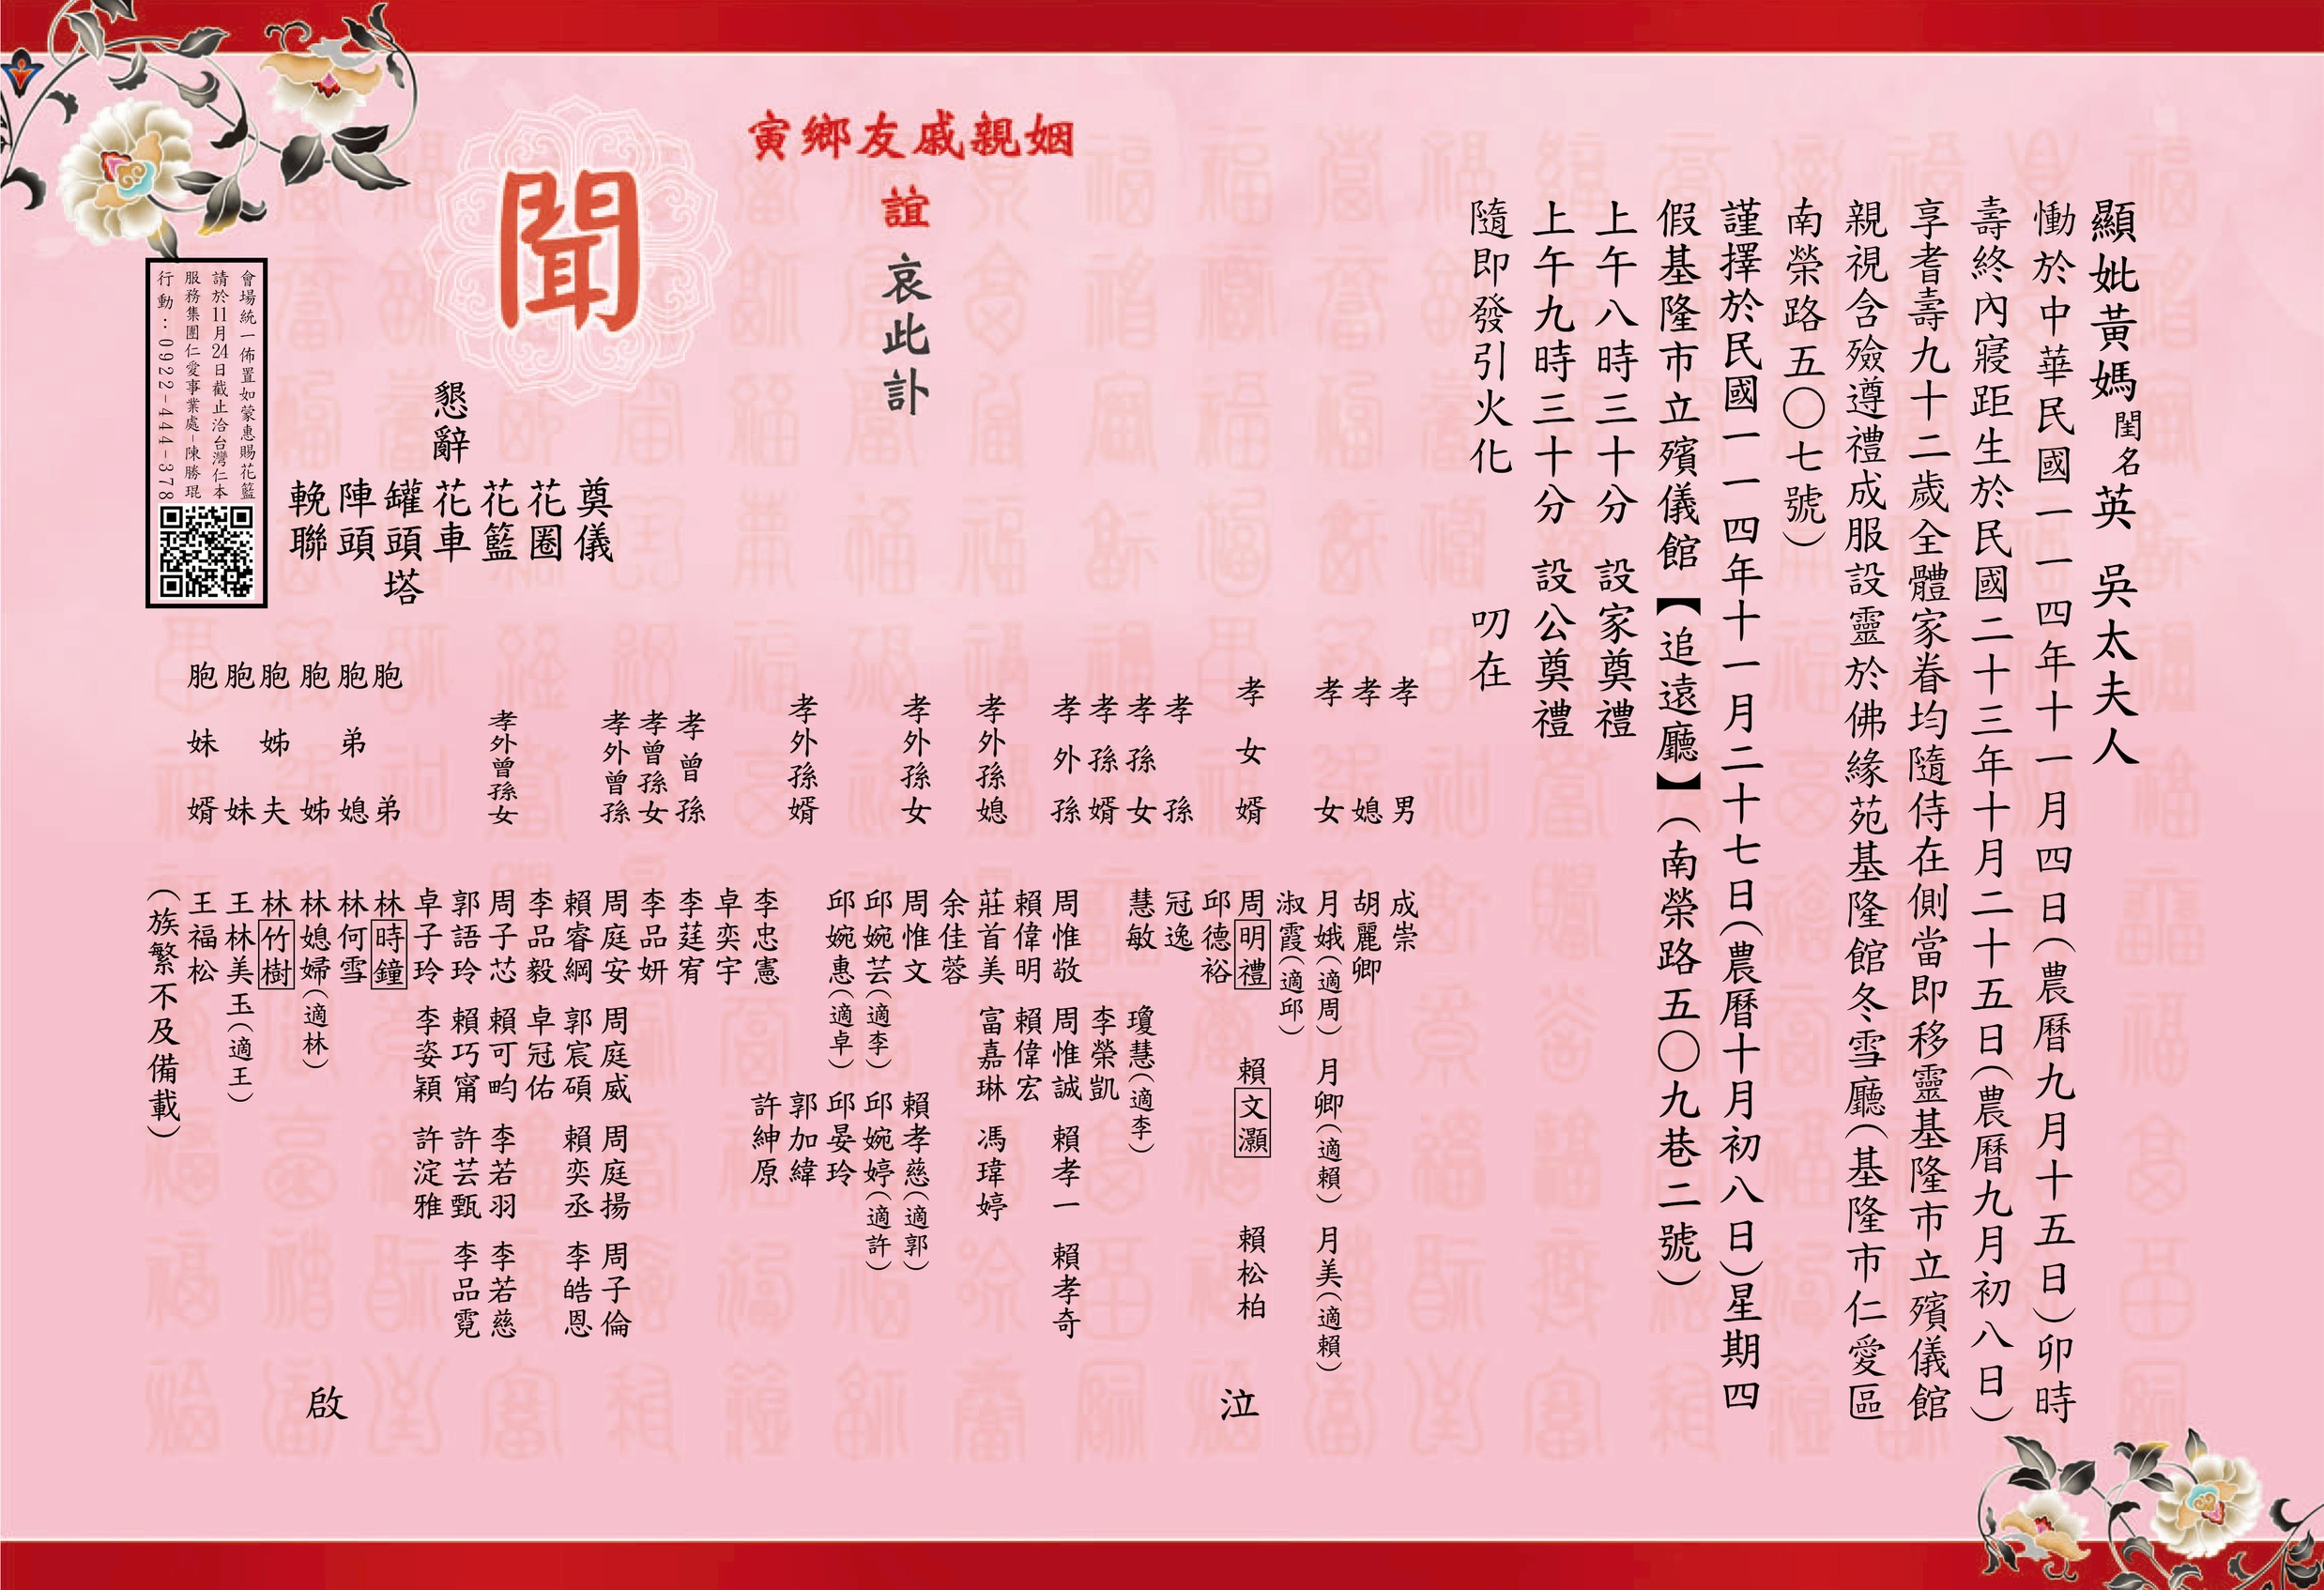 顯妣黃媽閨名英 吳太夫人
慟於中華民國一一四年十一月四日(農曆九月十五日)卯時
壽終內寢距生於民國二十三年十月二十五日(農曆九月初八日)
享耆壽九十二歲全體家眷均隨侍在側當即移靈基隆市立殯儀館
親視含殮遵禮成服設靈於佛緣苑基隆館冬雪廳(基隆市仁愛區
南榮路五〇七號)
謹擇於民國一一四年十一月二十七日(農曆十月初八日)星期四
假基隆市立殯儀館【追遠廳】(南榮路五〇九巷二號)
上午八時三十分 設家奠禮
上午九時三十分 設公奠禮
隨即發引火化 叨在
姻親戚友鄉寅
誼
哀此訃
聞
孝男 成崇
孝媳 胡麗卿
孝女 月娥(適周) 月卿(適賴) 月美(適賴)
淑霞(適邱)
孝女婿 周明禮 賴文灝 賴松柏
邱德裕
孝孫 冠逸
孝孫女 慧敏 瓊慧(適李)
孝孫婿 李榮凱
孝外孫 周惟敬 周惟誠 賴孝一 賴孝奇
賴偉明 賴偉宏
孝外孫媳 莊首美 富嘉琳 馮瑋婷
余佳蓉
孝外孫女 周惟文 賴孝慈(適郭)
邱婉芸(適李) 邱婉婷(適許)
邱婉惠(適卓) 邱晏玲
孝外孫婿 郭加緯
李忠憲 許紳原
卓奕宇
孝曾孫 李莛宥
孝曾孫女 李品妍
孝外曾孫 周庭安 周庭威 周庭揚 周子倫
賴睿綱 郭宸碩 賴奕丞 李皓恩
李品毅 卓冠佑
孝外曾孫女 周子芯 賴可畇 李若羽 李若慈
郭語玲 賴巧甯 許芸甄 李品霓
卓子玲 李姿穎 許淀雅
胞弟 林時鐘
胞弟媳 林何雪
胞姊 林媳婦(適林)
胞姊夫 林竹樹
胞妹 王林美玉(適王)
胞妹婿 王福松
(族繁不及備載)
泣
啟
懇辭
奠儀
花圈
花籃
花車
罐頭塔
陣頭
輓聯
會場統一佈置如蒙惠賜花籃
請於11月24日截止洽台灣仁本
服務集團仁愛事業處-陳勝琨
行動:0922-444-378